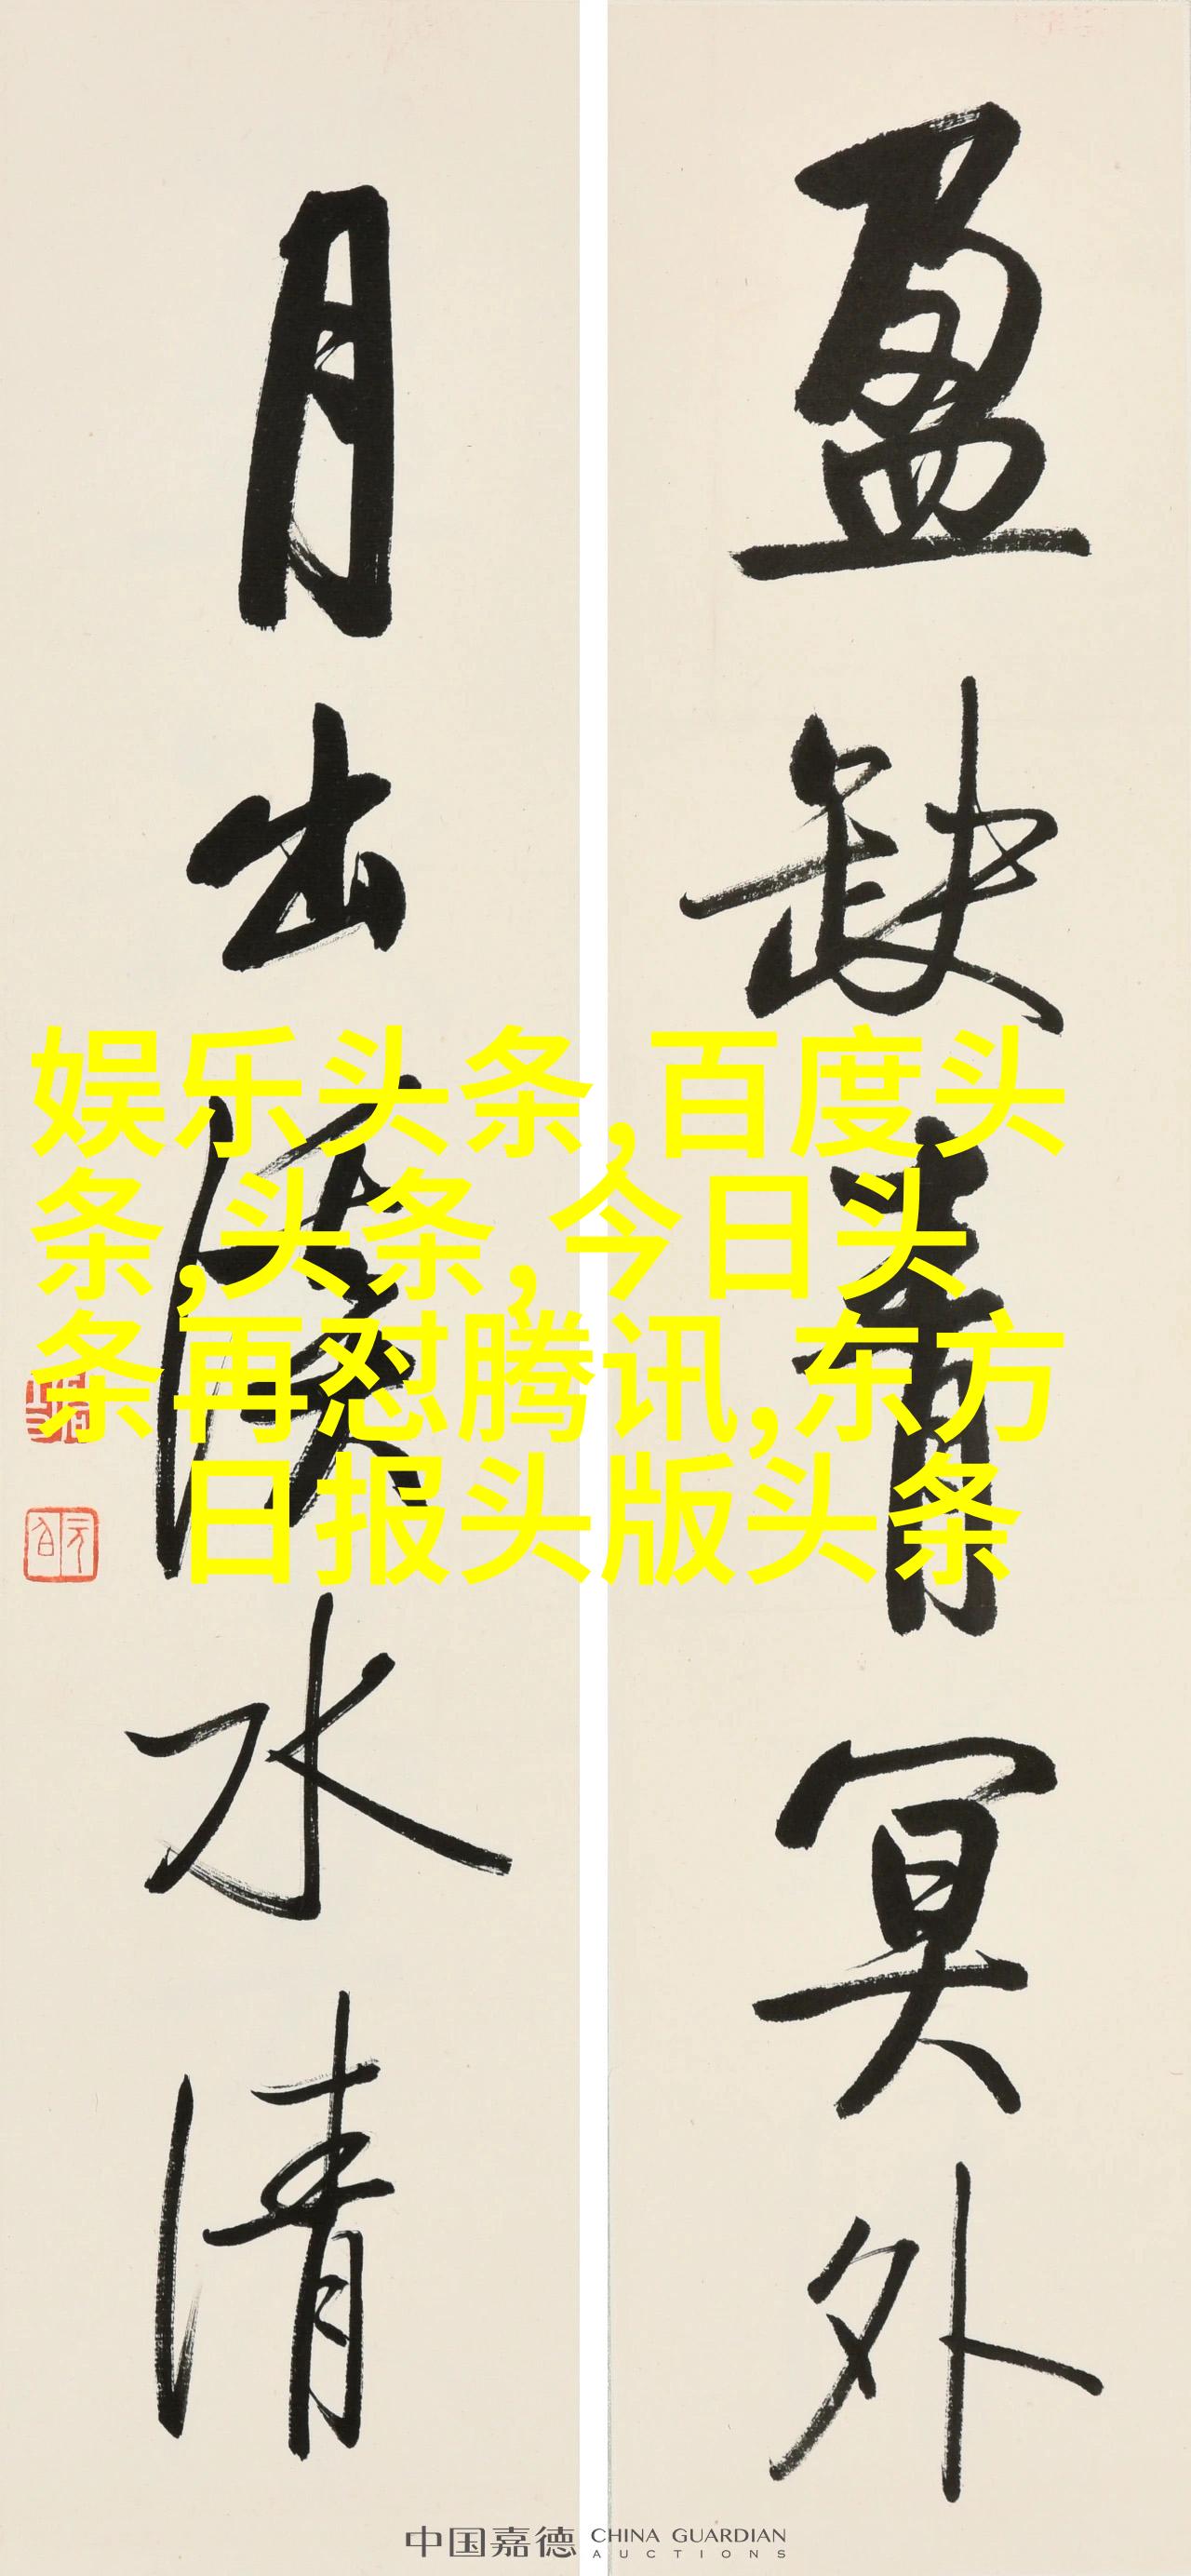 盈缺青冥外
月出溪水清
娱乐头条,百度头
条,头条, 今日头
条再怼腾讯,东方
日报头版头条
中国嘉德 CHINA GUARDIAN
AUCTIONS